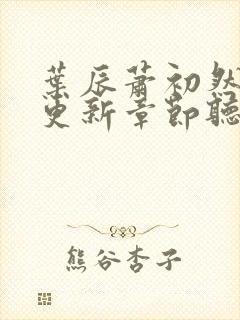 葉辰蕭初然
更新章節聽
熊谷杏子